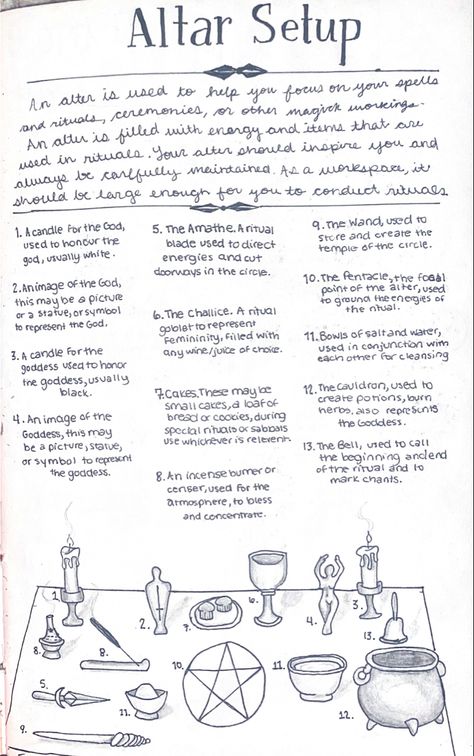 Altar Setup
An alter is used to help you focus on your spells
and rituals, ceremonies, or other magick workings.
An alter is filled with energy and items that are
used in rituals. Your alter should inspire you and
always be carfully maintained. As a workspace, it
should be large enough for you to conduct rituals
1. A candle for the God,
used to honour the
god, usually white.
2. An image of the God,
this may be a picture
or a statue, or symbol
to represent the God.
3. A candle for the
goddess used to honor
the goddess, usually
black.
4. An image of the
Goddess, this may
be a picture, statue,
or symbol to represent
the goddess.
5. The Amathe. A ritual
blade used to direct
energies and cut
doorways in the circle.
6. The Challice. A ritual
goblet to represent
femininity, filled with
any wine/juice of choice.
7. Cakes. These may be
small cakes, a loaf of
bread or cookies, during
special rituals or sabbats
use whichever is relevent.
8. An incense burner or
censer, used for the
atmosphere, to bless
and concentrate.
9. The Wand, used to
store and create the
temple of the circle.
10. The Pentacle, the focal
point of the alter, used
to ground the energies of
the ritual.
11. Bowls of salt and water,
used in conjunction with
each other for cleansing
12. The Cauldron, used to
create potions, burn
herbs, also represents
the Goddess.
13. The Bell, used to call
the beginning and end
of the ritual and to
mark chants.
1.
2.
7.
6.
4.
3.
13.
8.
8.
10.
11.
5.
11.
12.
9.